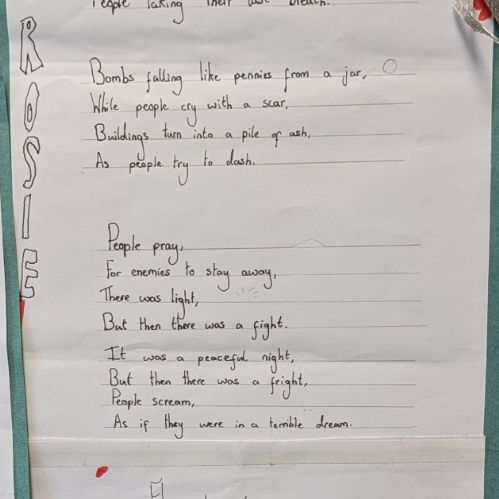 People Taking Their last breath.
ROSIE
Bombs falling like pennies from a jar,
While people cry with a scar,
Buildings turn into a pile of ash,
As people try to dash.
People pray,
For enemies to stay away,
There was light,
But then there was a fight.
It was a peaceful night,
But then there was a fright,
People scream,
As if they were in a terrible dream.